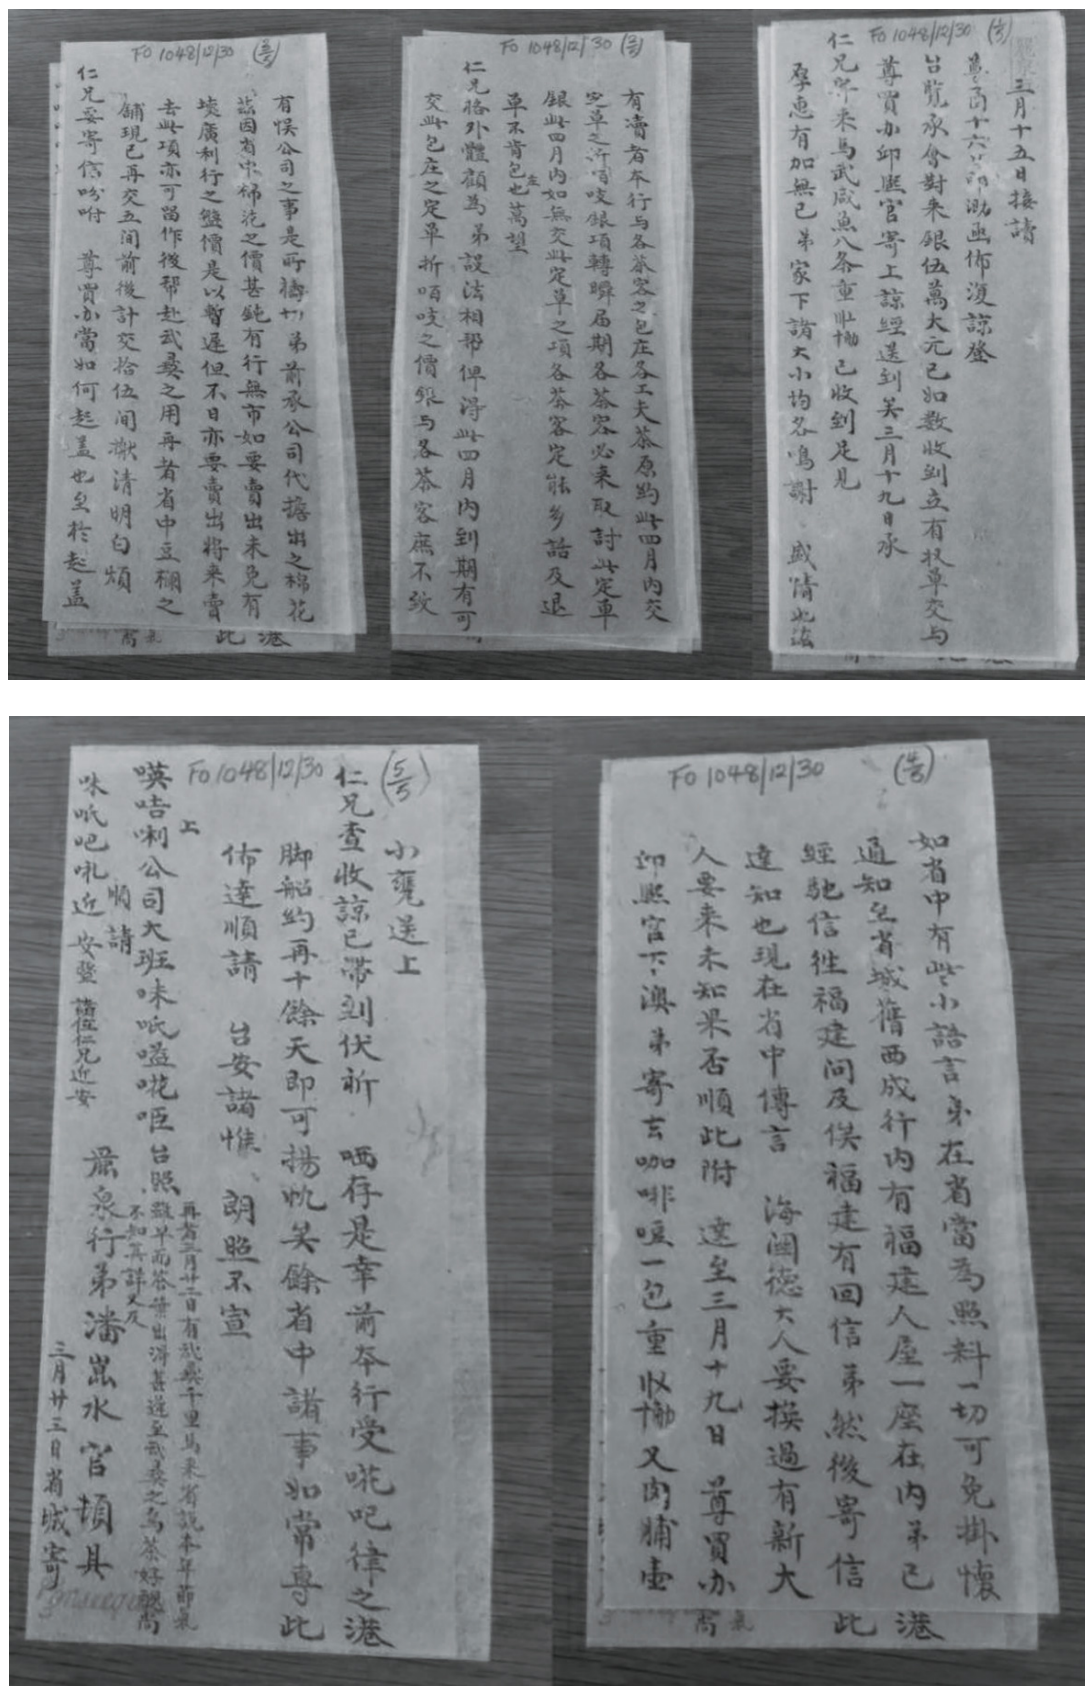 FO 1048/12/30 (1/5)
三月十五日接請
尊函十六
台覽承會對來銀伍萬大元已如數收到立有收單交与
尊買办邱熙官寄上諒經送到矣三月十九日承
仁兄所來馬武咸魚八条重 已收到足見
厚惠有加無已弟家下諸大小均各鳴謝 盛情
FO 1048/12/30 (2/5)
有瀆者本行与各茶客之包庄各工夫茶原約此四月内交
定單之 銀項轉瞬届期各茶客必来取討此定單
銀此四月内如無交此定單之項各茶客定然多話及退
單不肯包也萬望
仁兄格外體顧為弟設法相帮俾得此四月内到期有可
交此包庄之定單折 之價銀与各茶客庶不致
FO 1048/12/30 (3/5)
有悞公司之事是所禱切弟前承公司代擔出之棉花
茲因省中棉花之價甚鈍有行無市如要賣出未免有
壞廣利行之盤價是以暫遲但不日亦要賣出將来賣
去此項亦可留作後帮赴武彞之用再者省中豆欄之
舖現已再交五间前後計交拾伍间 清明白煩
仁兄妥寄信吩咐 尊買办當如何起盖也至於起盖
FO 1048/12/30 (4/5)
如省中有些小語言弟在省當為照料一切可免掛懷
通知至省城舊西成行内有福建人屋一座在内弟已
經馳信徃福建问及俟福建有回信弟然後寄信
達知也現在省中傳言 海關德大人要換過有新大
人要来未知果否順此附 達至三月十九日 尊買办
邱熙官下澳弟寄去咖啡荳一包重 又肉脯壹
FO 1048/12/30 (5/5)
小甕送上
仁兄查收諒已帶到伏祈 哂存是幸前本行受嘧吧律之港
脚船約再十餘天即可揚帆矣餘省中諸事如常專此
佈達順請 台安諸惟 朗照不宣
上
㗲咭唎公司大班味 台照
順請
味 近安暨諸位仁兄近安
再者三月廿二日有武彞千里馬来省說本年節氣
雖早而茶葉出得甚遲至武彞之烏茶好醜尚
不知其詳又及
泉行弟潘崑水官頓具
三月廿三日省城寄